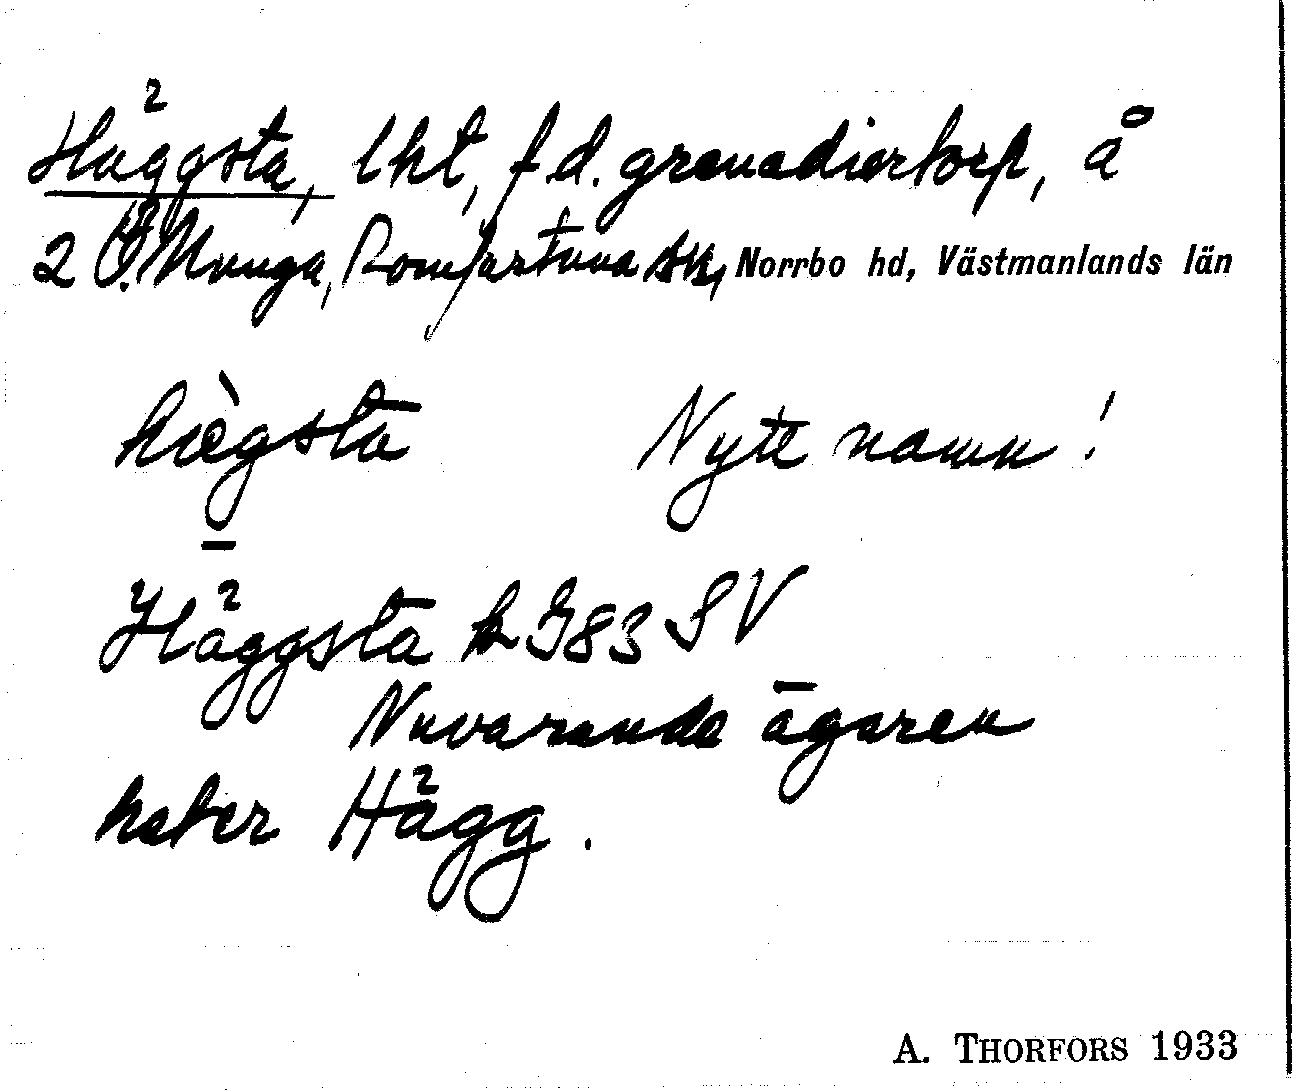 Häggsta, lht, f.d. grenadiertorp, å
2 Ö. Munga, Romfartuna sk, Norrbo hd, Västmanlands län
hæ̀gsta Nytt namn!
Häggsta k G83 SV
Nuvarande ägaren
heter Hägg.
A. THORFORS 1933